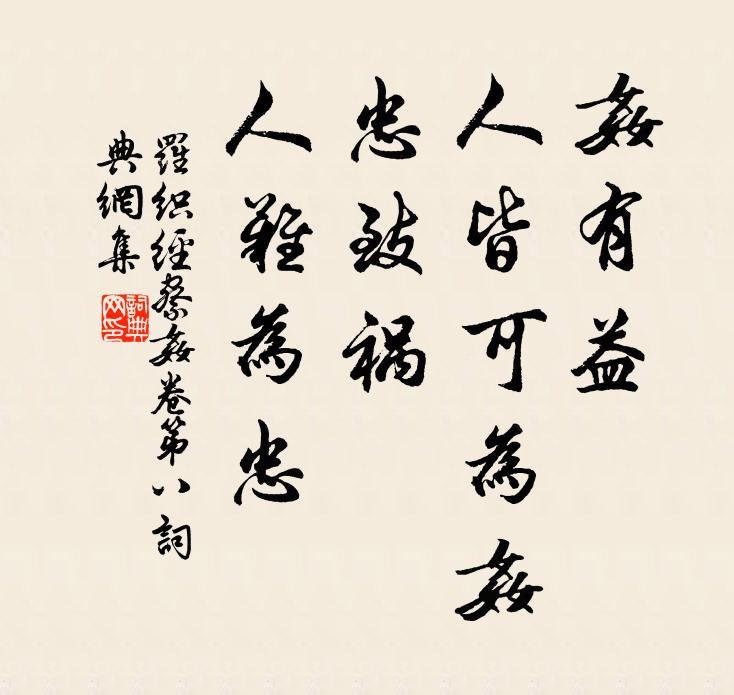 姦有益
人皆可為姦
忠致禍
人難為忠
羅織經察姦卷第八詞
典網集
詞典
网印